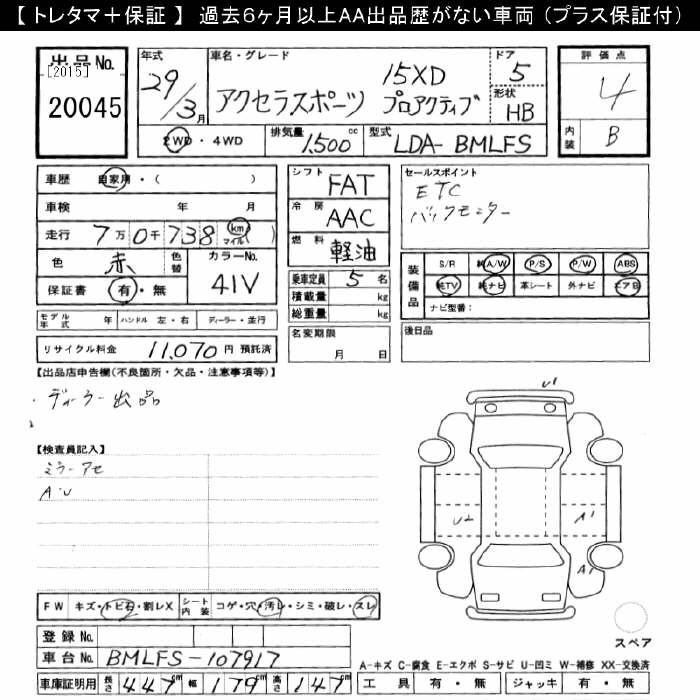 【 トレタマ＋保証 】 過去６ヶ月以上ＡＡ出品歴がない車両（プラス保証付）
出品No.
[2015]
20045
年式 29/3月
車名・グレード
15XD
アクセラスポーツ プロアクティブ
ドア 5
形状 HB
2WD・4WD
排気量 1,500 cc
型式 LDA-BMLFS
評価点
4
内装 B
車歴 自家用・( )
車検 年 月
走行 7万0千738 km マイル ( )
色 赤 色替
カラーNo.
41V
保証書 有・無
モデル年式 年 ハンドル 左・右 ディーラー・並行
リサイクル料金 11,070 円 預託済
シフト FAT
冷房 AAC
燃料 軽油
乗車定員 5 名
積載量 kg
総重量 kg
名変期限
月 日
セールスポイント
ETC
バックモニター
装備品
S/R 純A/W P/S P/W ABS
純TV 純ナビ 革シート 外ナビ エアB
ナビ型番：
後日品
【出品店申告欄(不良箇所・欠品・注意事項等)】
ディーラー出品
【検査員記入】
ミラーアセ
A・U
FW キズ・トビ石・割レX
シート内装 コゲ・穴・汚レ・シミ・破レ・スレ
登録No.
車台No. BMLFS-107917
車庫証明用 長さ 447 m 幅 179 cm 高さ 147 m
U1
U2
A1
A1
スペア
A-キズ C-腐食 E-エクボ S-サビ U-凹ミ W-補修 XX-交換済
工具 有・無 ジャッキ 有・無